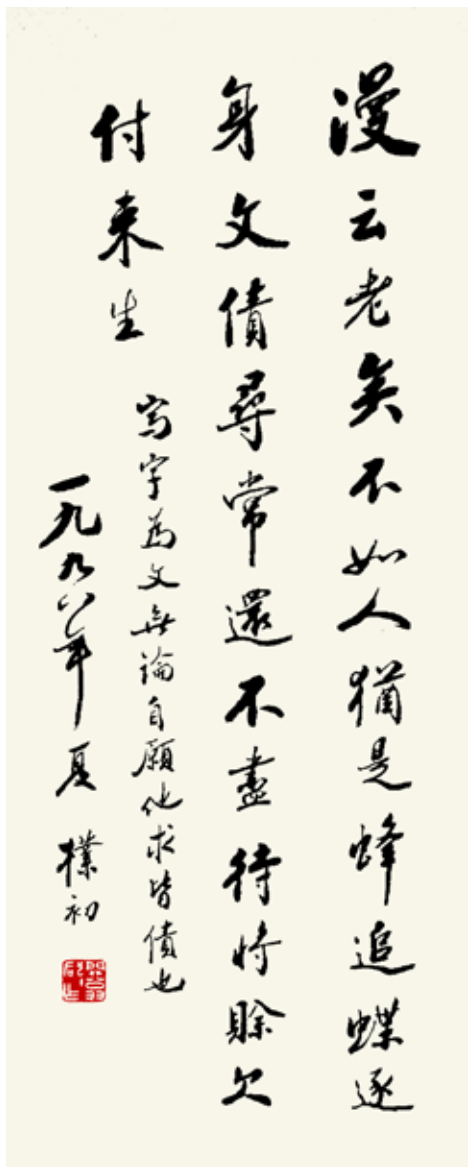 漫云老矣不如人猶是蜂追蝶逐
身文債尋常還不盡待將賒欠
付來生
写字為文無論自願他求皆債也
一九九八年夏 樸初